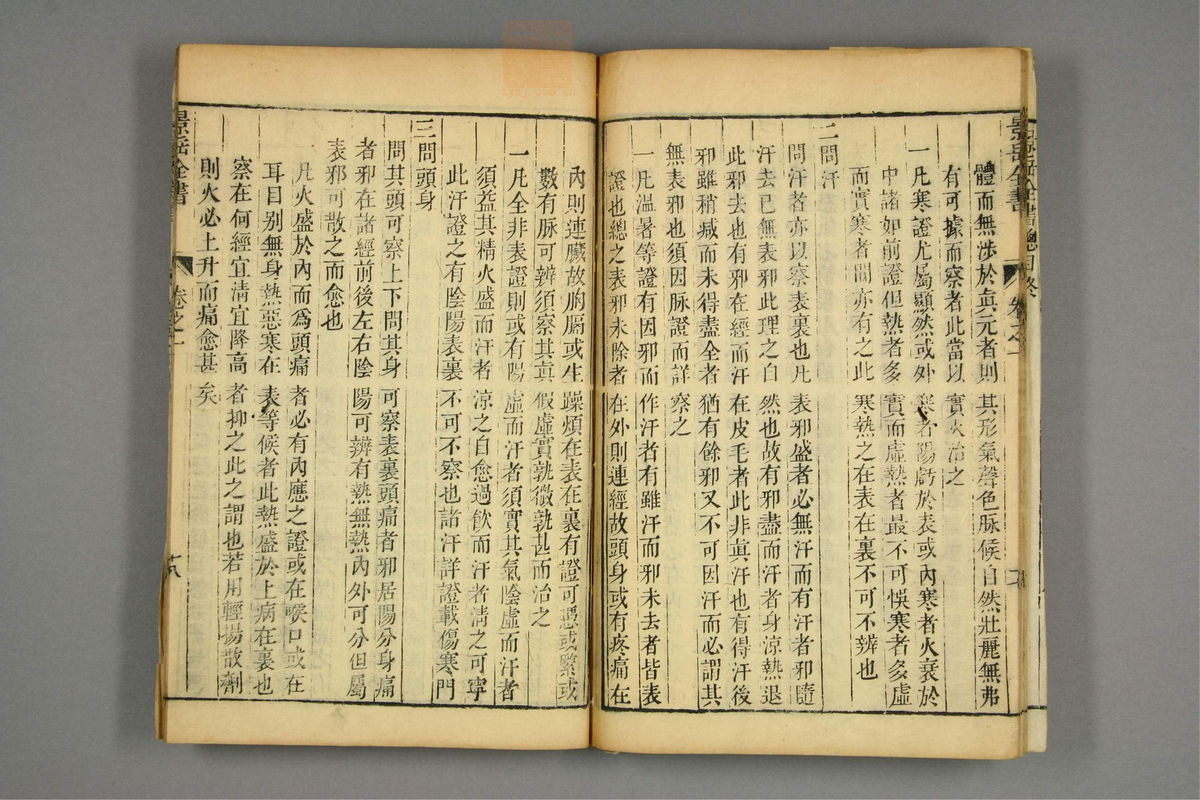 體而無涉於眞元者則其形氣聲色脉候自然壯麗無弗
有可據而察者此當以實火治之
一凡寒證尤屬顯然或外寒者陽虧於表或內寒者火衰於
中諸如前證但熱者多實而虛熱者最不可悞寒者多虛
而實寒者間亦有之此寒熱之在表在裏不可不辨也
二問汗
問汗者亦以察表裏也凡表邪盛者必無汗而有汗者邪隨
汗去已無表邪此理之自然也故有邪盡而汗者身涼熱退
此邪去也有邪在經而汗在皮毛者此非眞汗也有得汗後
邪雖稍減而未得盡全者猶有餘邪又不可因汗而必謂其
無表邪也須因脉證而詳察之
一凡温暑等證有因邪而作汗者有雖汗而邪未去者皆表
證也總之表邪未除者在外則連經故頭身或有疼痛在
內則連臟故胸膈或生躁煩在表在裏有證可慿或緊或
數有脉可辨須察其眞假虛實孰微孰甚而治之
一凡全非表證則或有陽虛而汗者須實其氣陰虛而汗者
須益其精火盛而汗者涼之自愈過飲而汗者清之可寧
此汗證之有陰陽表裏不可不察也諸汗詳證載傷寒門
三問頭身
問其頭可察上下問其身可察表裏頭痛者邪居陽分身痛
者邪在諸經前後左右陰陽可辨有熱無熱內外可分但屬
表邪可散之而愈也
一凡火盛於內而為頭痛者必有內應之證或在喉口或在
耳目別無身熱惡寒在表等候者此熱盛於上病在裏也
察在何經宜清宜降高者抑之此之謂也若用輕揚散劑
則火必上升而痛愈甚矣
景岳全書
卷之一
十八